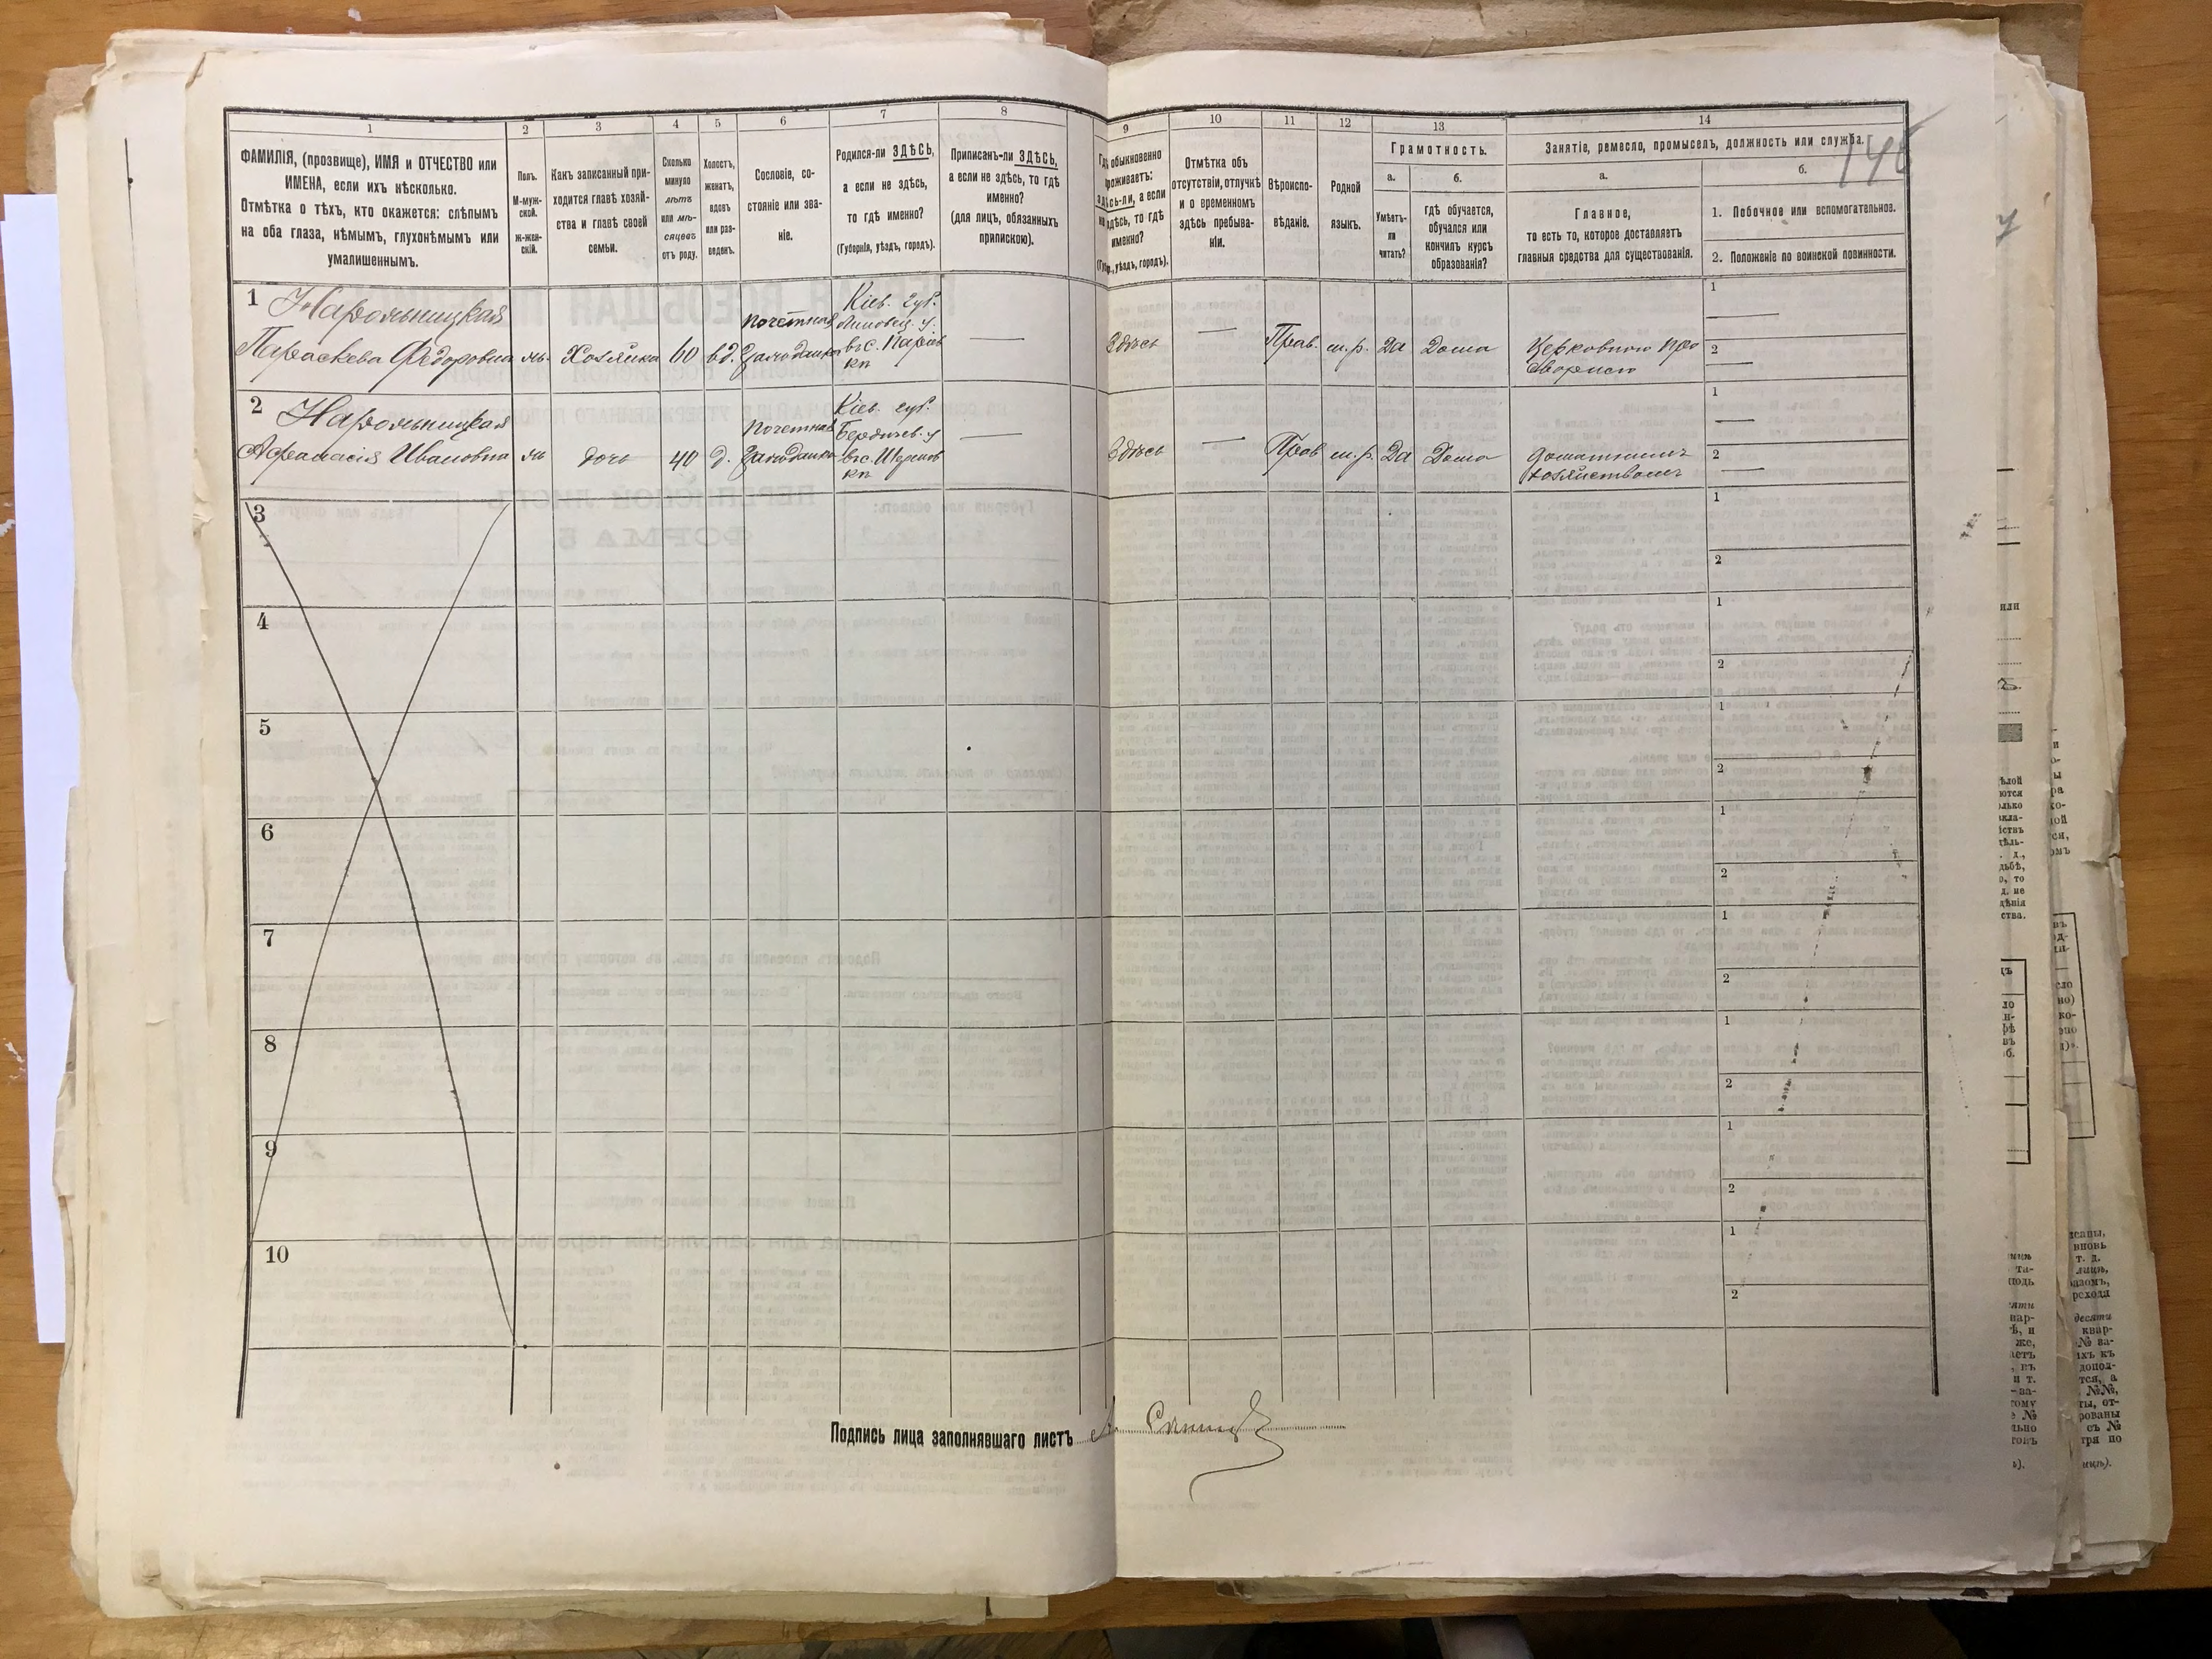 1
2
3
4
5
6
7
8
ФАМИЛІЯ, (прозвище), ИМЯ и ОТЧЕСТВО или
ИМЕНА, если ихъ нѣсколько.
Отмѣтка о тѣхъ, кто окажется: слѣпымъ
на оба глаза, нѣмымъ, глухонѣмымъ или
умалишеннымъ.
Полъ.
М-муж-
ской.
ж-жен-
скій.
Какъ записанный при-
ходится главѣ хозяй-
ства и главѣ своей
семьи.
Сколько
минуло
лѣтъ
или мѣ-
сяцевъ
отъ роду.
Холостъ,
женатъ,
вдовъ
или раз-
веденъ.
Сословіе, со-
стояніе или зва-
ніе.
Родился-ли ЗДѢСЬ,
а если не здѣсь,
то гдѣ именно?
(Губернія, уѣздъ, городъ).
Приписанъ-ли ЗДѢСЬ,
а если не здѣсь, то гдѣ
именно?
(для лицъ, обязанныхъ
припискою).
9
10
11
12
13
14
Гдѣ обыкновенно
проживаетъ:
здѣсь-ли, а если
не здѣсь, то гдѣ
именно?
(Губ., уѣздъ, городъ).
Отмѣтка объ
отсутствіи, отлучкѣ
и о временномъ
здѣсь пребыва-
ніи.
Вѣроиспо-
вѣданіе.
Родной
языкъ.
Грамотность.
а.
б.
Умѣетъ-
ли
читать?
гдѣ обучается,
обучался или
кончилъ курсъ
образованія?
Занятіе, ремесло, промыселъ, должность или служба.
а.
б.
Главное,
то есть то, которое доставляетъ
главныя средства для существованія.
1. Побочное или вспомогательное.
2. Положеніе по воинской повинности.
1 Народницкая
Параскева Федоровна
ж.
Хозяйка
60
вд.
почетная
гражданка
Кіев. губ.
Липовец. у.
въ с.
Здѣсь
Прав.
м. р.
Да
Дома
Церковного про
1
2
2 Народницкая
Афанасія Ивановна
ж
дочь
40
д.
почетная
гражданка
Кіев. губ.
Бердичев. у
въ с.
Здѣсь
Прав
м. р.
Да
Дома
домашнимъ
хозяйствомъ
1
2
3
1
2
4
1
2
5
1
2
6
1
2
7
1
2
8
1
2
9
1
2
10
1
2
Подпись лица заполнявшаго листъ